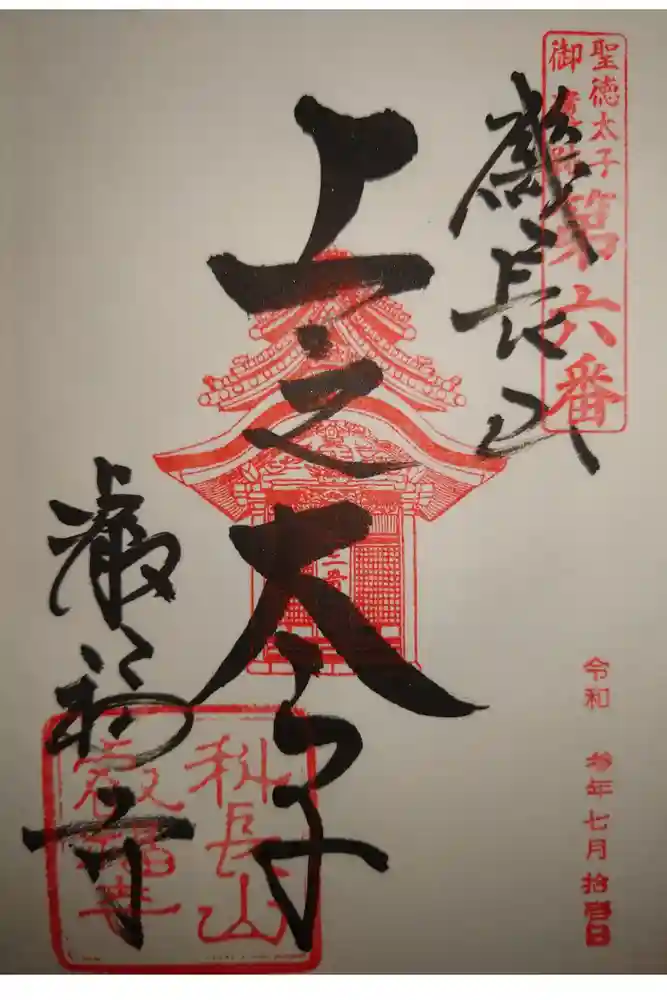 聖徳太子
御遺跡第六番
磯長山
上之太子
叡福寺
科長山
叡福寺
令和 参年七月拾壹日